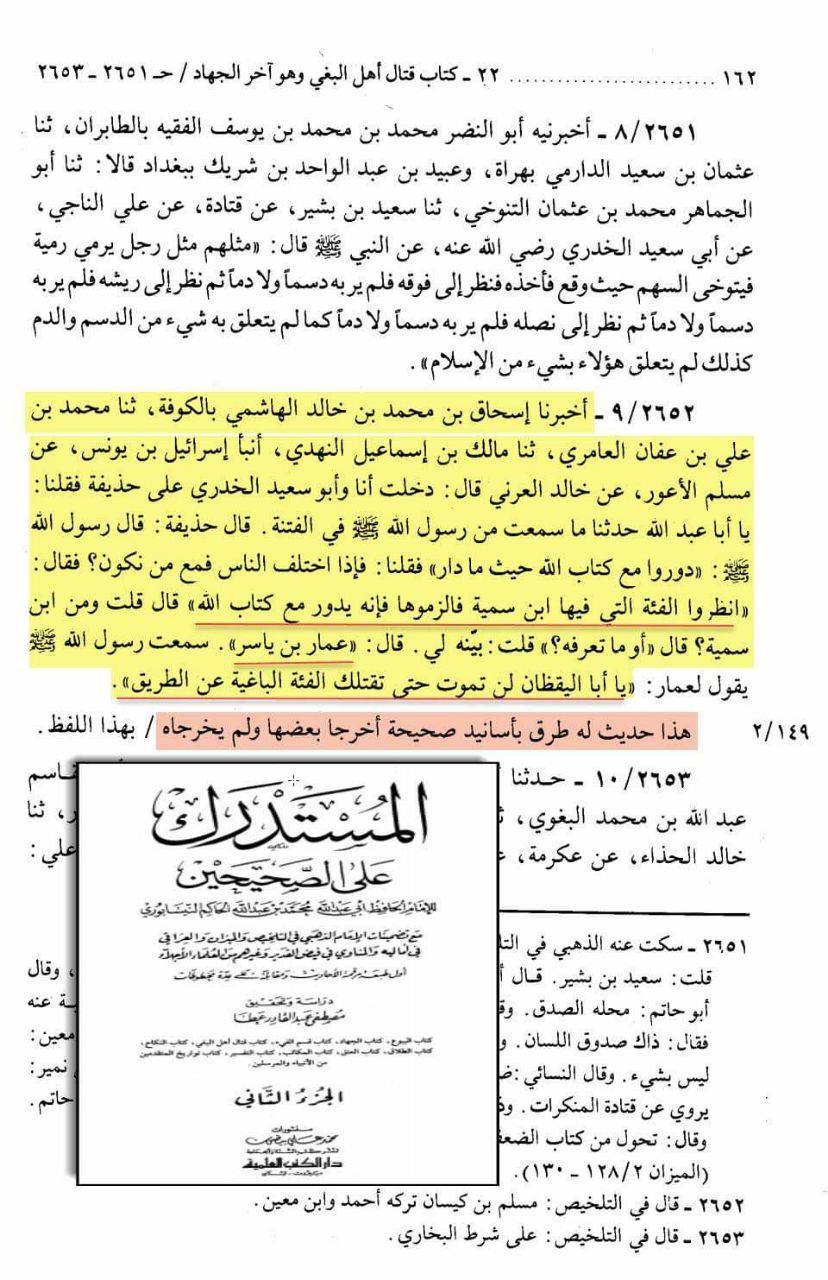 ١٦٢ .......................... ٢٢ - كتاب قتال أهل البغي وهو آخر الجهاد / حـ ٢٦٥١ - ٢٦٥٣
٨/٢٦٥١ - أخبرنيه أبو النضر محمد بن محمد بن يوسف الفقيه بالطابران، ثنا
عثمان بن سعيد الدارمي بهراة، وعبيد بن عبد الواحد بن شريك ببغداد قالا: ثنا أبو
الجماهر محمد بن عثمان التنوخي، ثنا سعيد بن بشير، عن قتادة، عن علي الناجي،
عن أبي سعيد الخدري رضي الله عنه، عن النبي ﷺ قال: «مثلهم مثل رجل يرمي رمية
فيتوخى السهم حيث وقع فأخذه فنظر إلى فوقه فلم ير به دسماً ولا دماً ثم نظر إلى ريشه فلم ير به
دسماً ولا دماً ثم نظر إلى نصله فلم ير به دسماً ولا دماً كما لم يتعلق به شيء من الدسم والدم
كذلك لم يتعلق هؤلاء بشيء من الإسلام».
٩/٢٦٥٢ - أخبرنا إسحاق بن محمد بن خالد الهاشمي بالكوفة، ثنا محمد بن
علي بن عفان العامري، ثنا مالك بن إسماعيل النهدي، أنبأ إسرائيل بن يونس، عن
مسلم الأعور، عن خالد العرني قال: دخلت أنا وأبو سعيد الخدري على حذيفة فقلنا:
يا أبا عبد الله حدثنا ما سمعت من رسول الله ﷺ في الفتنة. قال حذيفة: قال رسول الله
ﷺ: «دوروا مع كتاب الله حيث ما دار» فقلنا: فإذا اختلف الناس فمع من نكون؟ فقال:
«انظروا الفئة التي فيها ابن سمية فالزموها فإنه يدور مع كتاب الله» قال قلت ومن ابن
سمية؟ قال «أو ما تعرفه؟» قلت: بيّنه لي. قال: «عمار بن ياسر». سمعت رسول الله ﷺ
يقول لعمار: «يا أبا اليقظان لن تموت حتى تقتلك الفئة الباغية عن الطريق».
٢/١٤٩ هذا حديث له طرق بأسانيد صحيحة أخرجا بعضها ولم يخرجاه / بهذا اللفظ.
١٠/٢٦٥٣ - حدثنا
عبد الله بن محمد البغوي، ثنا
خالد الحذاء، عن عكرمة، علي:
المستدرك
على الصحيحين
للإمام الحافظ أبي عبد الله محمد بن عبد الله الحاكم النيسابوري
مع تضمينات الإمام الذهبي في التلخيص والميزان والعراقي
في أماليه والمناوي في فيض القدير وغيرهم من العلماء الأجلاء
دراسة وتحقيق
مصطفى عبد القادر عطا
كتاب البيوع، كتاب الجهاد، كتاب قسم الفيء، كتاب قتال أهل البغي، كتاب النكاح،
كتاب الطلاق، كتاب العتق، كتاب المكاتب، كتاب التفسير، كتاب تواريخ المتقدمين
من الأنبياء والمرسلين.
الجزء الثاني
منشورات
محمد علي بيضون
دار الكتب العلمية
٢٦٥١ - سكت عنه الذهبي في
قلت: سعيد بن بشير. قال ، وقال
أبو حاتم: محله الصدق. عنه
فقال: ذاك صدوق اللسان. معين:
ليس بشيء. وقال النسائي: نمير:
يروي عن قتادة المنكرات. حاتم.
وقال: تحول من كتاب
(الميزان ١٢٨/٢ - ١٣٠).
٢٦٥٢ - قال في التلخيص: مسلم بن كيسان تركه أحمد وابن معين.
٢٦٥٣ - قال في التلخيص: على شرط البخاري.